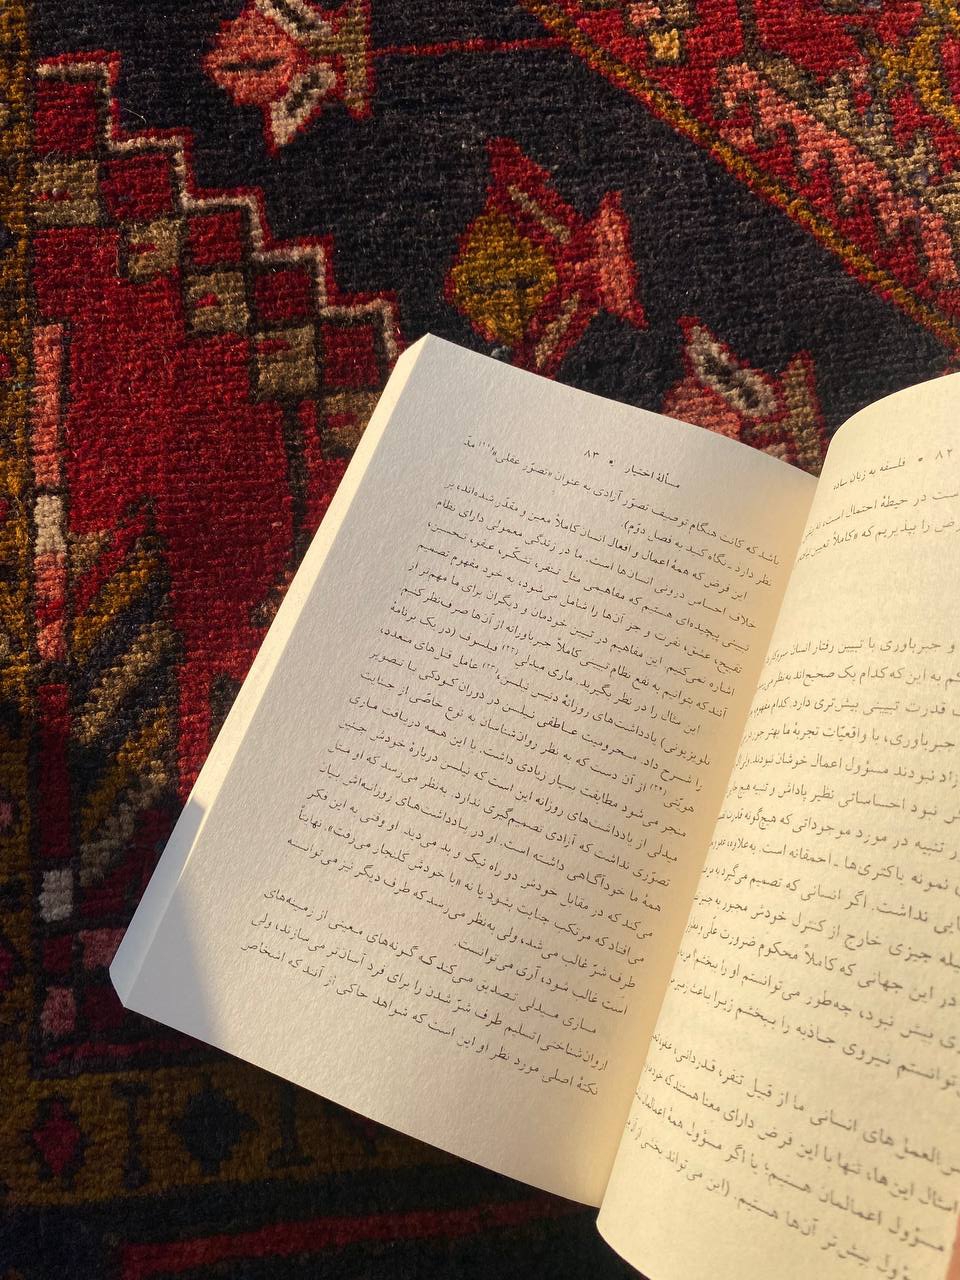 ۸۲ • فلسفه به زبان ساده
است در حیطهٔ احتمال است،
فرض را بپذیریم که «کاملاً تعیین
و جبرباوری با تبیین رفتار انسان
به این که کدام یک صحیح‌اند به‌نظر
قدرت تبیینی بیش‌تری دارد. کدام مفهوم
جبرباوری، با واقعیّات تجربهٔ ما بهتر جور
آزاد نبودند مسؤول اعمال خوشان نبودند.
نبود احساساتی نظیر پاداش و تنبیه هم
تنبیه در مورد موجوداتی که هیچ‌گونه قدرت
نمونه باکتری‌ها - احمقانه است. به‌علاوه،
نداشت. اگر انسانی که تصمیم می‌گیرد
چیزی خارج از کنترل خودش مجبور به
در این جهانی که کاملاً محکوم ضرورت علّی
بیش نبود، چه‌طور می‌توانستم او را ببخشم؟
توانستم نیروی جاذبه را ببخشم زیرا باعث
العمل‌های انسانی ما از قبیل تنفر، قدردانی،
امثال این‌ها، تنها با این فرض دارای معنا هستند که
مسؤول اعمالمان هستیم؛ یا اگر مسؤول همهٔ اعمالمان
مسؤول بیش‌تر آن‌ها هستیم. (این می‌تواند بخشی از
مسألهٔ اختیار • ۸۳
باشد که کانت هنگام توصیف تصوّر آزادی به عنوان «تصوّر عقلی» مدّ
نظر دارد - نگاه کنید به فصل دوّم).
این فرض که همهٔ اعمال و افعال انسان کاملاً معین و مقدّر شده‌اند، بر
خلاف احساس درونی انسان‌ها است. ما در زندگی معمولی دارای نظام
تبیینی پیچیده‌ای هستیم که مفاهیمی مثل تنفر، تشکّر، عفو، تحسین،
تقبیح، عشق، نفرت و جز آن‌ها را شامل می‌شود، به خود مفهوم تصمیم
اشاره نمی‌کنیم. این مفاهیم در تبیین خودمان و دیگران برای ما مهم‌تر از
آنند که بتوانیم به نفع نظام تبیینی کاملاً جبرباورانه از آن‌ها صرف‌نظر کنیم.
این مثال را در نظر بگیرید. ماری میدلی(۲۲) فیلسوف (در یک برنامهٔ
تلویزیونی) یادداشت‌های روزانهٔ دنیس نیلسن،(۲۳) عامل قتل‌های متعدد،
را شرح داد. محرومیت عاطفی نیلسن در دوران کودکی با تصویر
هویّتی(۲۴) از آن دست که به نظر روان‌شناسان به نوع خاصّی از جنایت
منجر می‌شود مطابقت بسیار زیادی داشت. با این همه دریافت ماری
میدلی از یادداشت‌های روزانه این است که نیلس دربارهٔ خودش چنین
تصوّری نداشت که آزادی تصمیم‌گیری ندارد. به‌نظر می‌رسد که او مثل
همهٔ ما خودآگاهی داشته است. او در یادداشت‌های روزانه‌اش بیان
می‌کند که در مقابل خودش دو راه نیک و بد می دید. او وقتی به این فکر
می‌افتاد که مرتکب جنایت بشود یا نه «با خودش کلنجار می‌رفت». نهایتاً
طرف شرّ غالب می شد، ولی به‌نظر می‌رسد که طرف دیگر نیز می‌توانسته
است غالب شود، آری می‌توانست.
ماری میدلی تصدیق می‌کند که گونه‌های معینی از زمینه‌های
[روان‌شناختی] تسلیم طرف شرّ شدن را برای فرد آسان‌تر می‌سازند، ولی
نکتهٔ اصلی مورد نظر او این است که شواهد حاکی از آنند که اشخاص